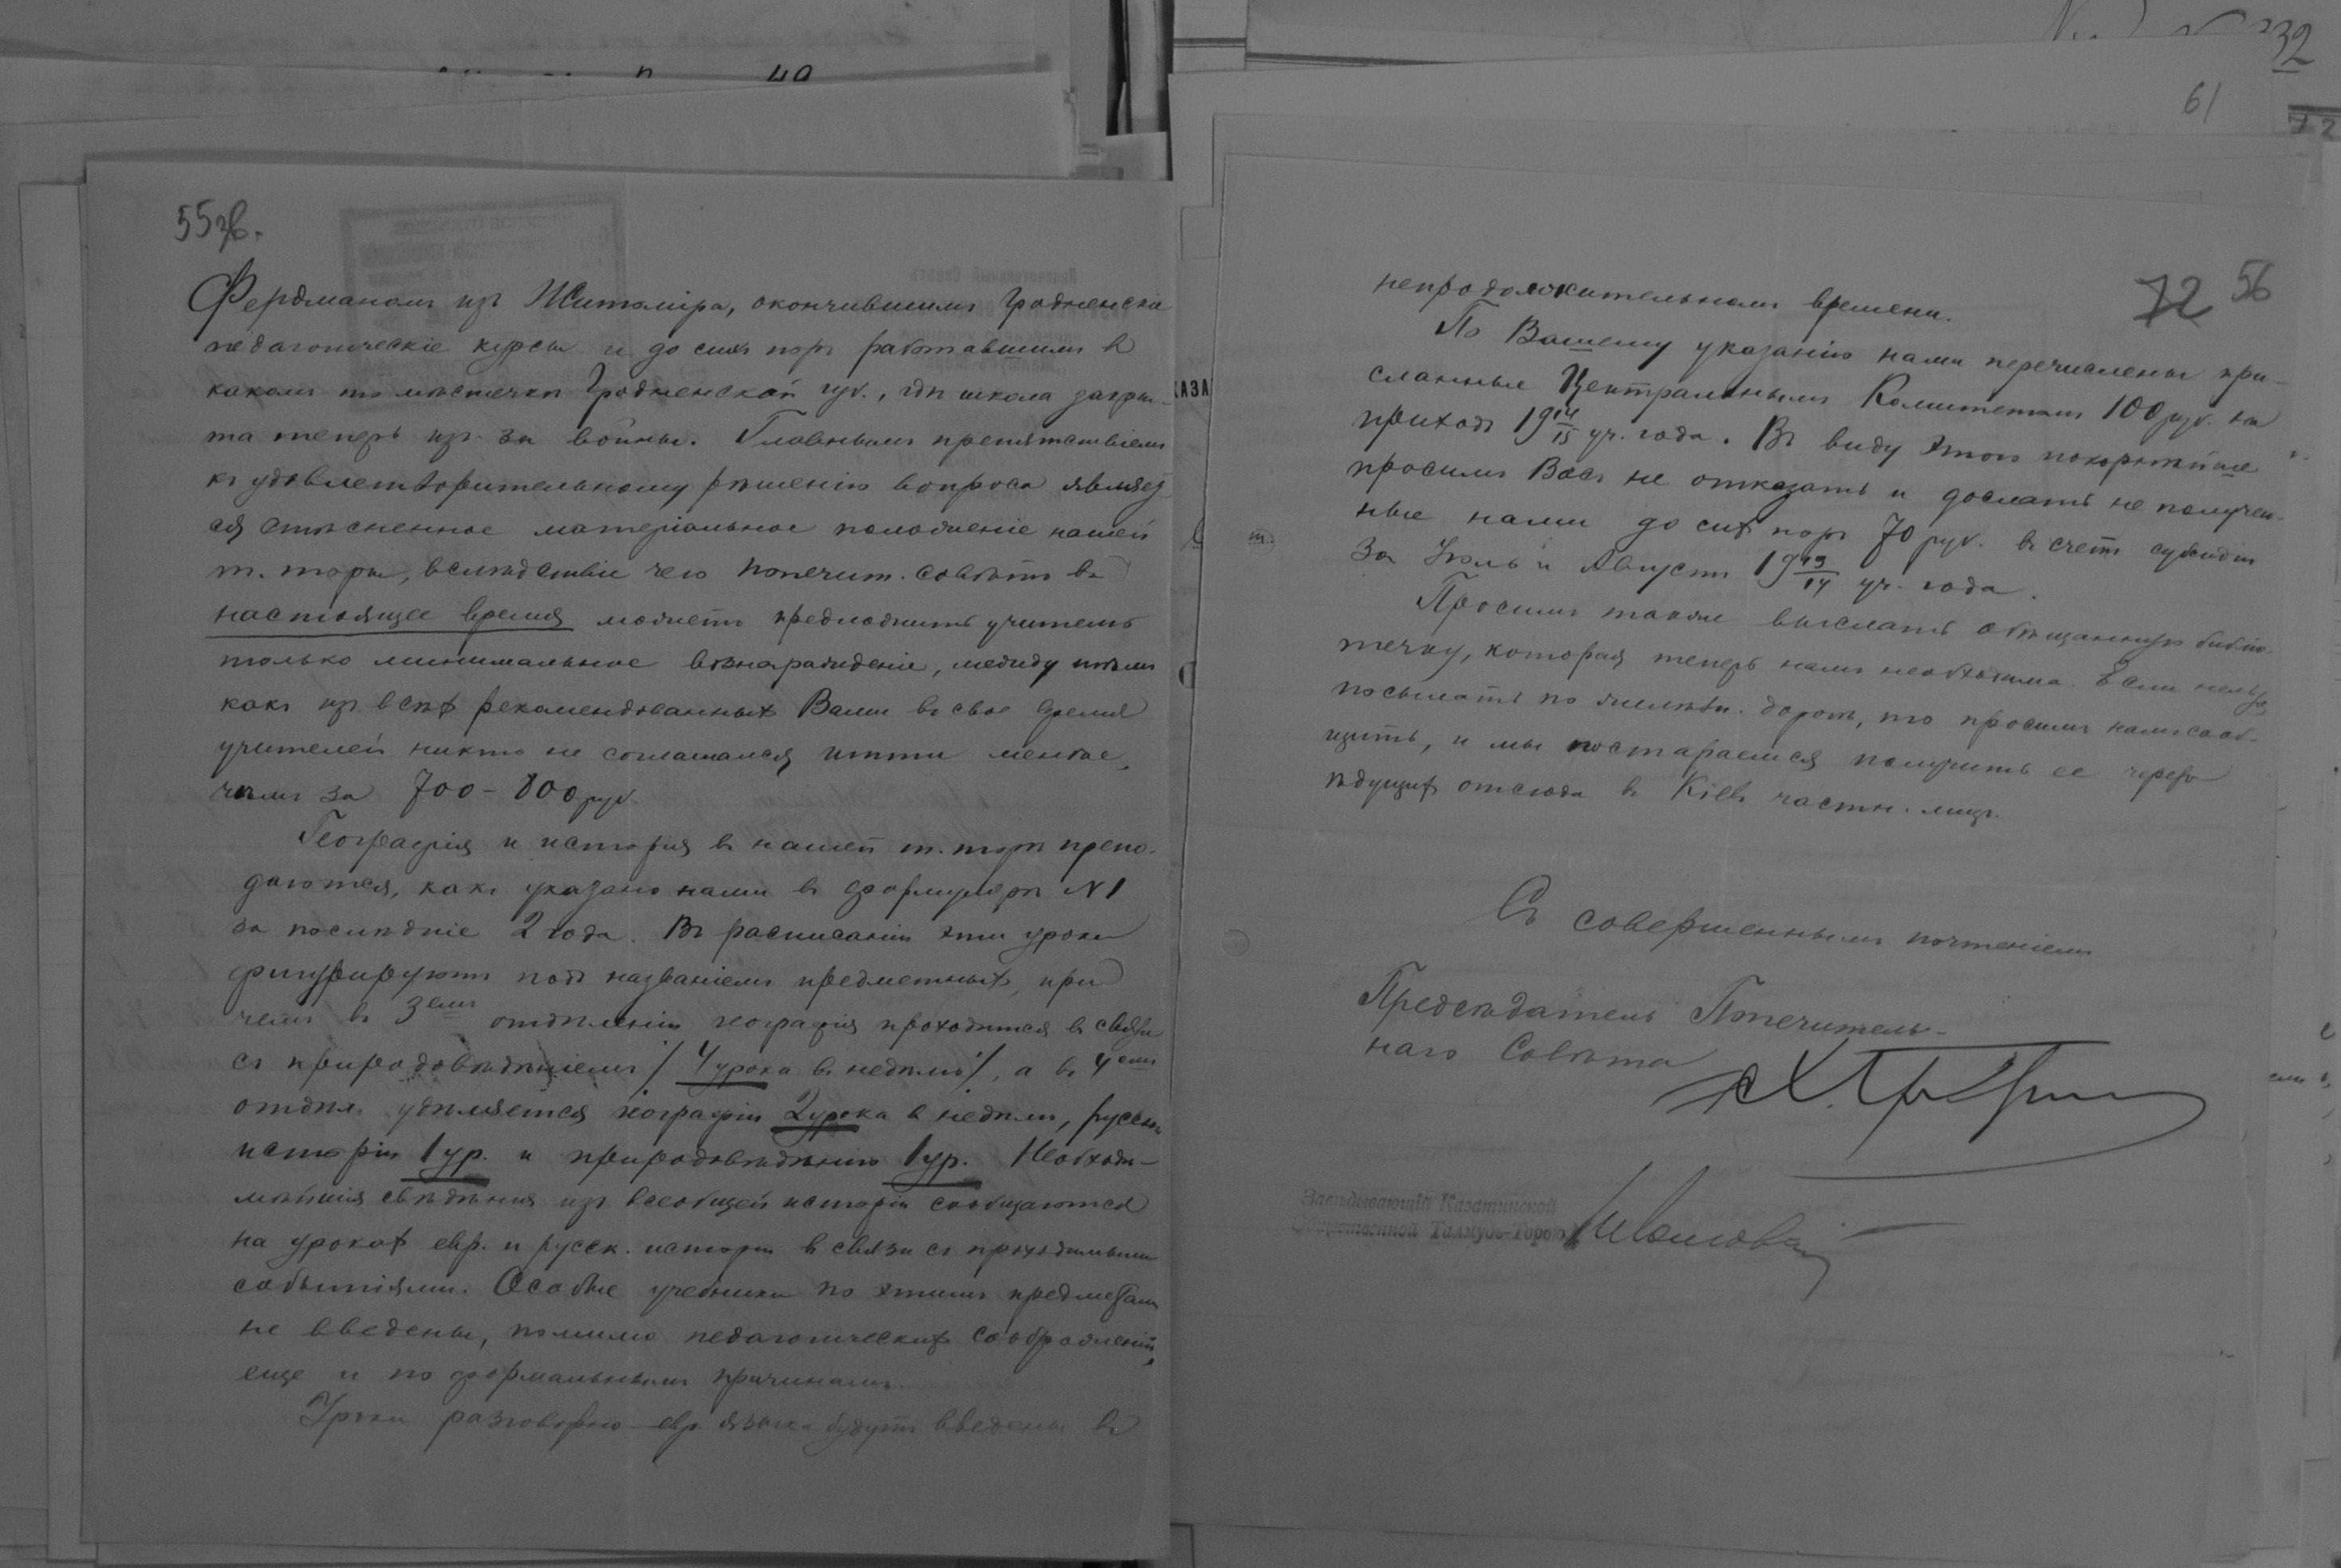 55 об.
Фердманомъ изъ Житомiра, окончившимъ Гродненскiе
педагогическiе курсы и до сихъ поръ работавшимъ въ
какомъ то мѣстечкѣ Гродненской губ., гдѣ школа закры-
та теперь изъ-за войны. Главнымъ препятствiемъ
къ удовлетворительному рѣшенiю вопроса являет-
ся стѣсненное матерiальное положенiе нашей
т. торы, вслѣдствiе чего попечит. совѣтъ въ
настоящее время можетъ предложить учителю
только минимальное вознагражденiе, между тѣмъ
какъ изъ всѣхъ рекомендованныхъ Вами въ свое время
учителей никто не соглашался итти менѣе,
чѣмъ за 700-800 руб.
Географiя и исторiя въ нашей т. торѣ препо-
даются, какъ указано нами въ формулярѣ N1
за послѣднiе 2 года. Въ расписанiи эти уроки
фигурируютъ подъ названiемъ предметныхъ, при
чемъ въ 3емъ отдѣленiи географiя проходится въ связи
съ природовѣдѣнiемъ / 4 урока въ недѣлю /, а въ 4омъ
отдѣл. удѣляется географiи 2 урока в недѣлю, русской
исторiи 1 ур. и природовѣдѣнiю 1 ур. Необходи-
мѣйшiя свѣдѣнiя изъ всеобщей исторiи сообщаются
на урокахъ евр. и русск. исторiи въ связи съ проходимыми
событiями. Особые учебники по этимъ предметамъ
не введены, помимо педагогическихъ соображенiй,
еще и по формальнымъ причинамъ.
Уроки разговорно-евр. языка будутъ введены въ
32
61
72
72 56
непродолжительномъ времени.
По Вашему указанiю нами перечислены при-
сланные Центральнымъ Комитетомъ 100 руб. на
приходъ 1914/15 уч. года. Въ виду этого покорнѣйше
просимъ Васъ не отказать и дослать не получен-
ные нами до сихъ поръ 70 руб. въ счетъ субсидiи
за Iюль и Августъ 1913/14 уч. года.
Просимъ также выслать обѣщанную библiо-
течку, которая теперь намъ необходима. Если нельзя
посылать по желѣзн. дорогѣ, то просимъ намъ сооб-
щить, и мы постараемся получить ее черезъ
ѣдущихъ отсюда въ Кiевъ частн. лицъ.
Съ совершеннымъ почтенiемъ
Предсѣдатель Попечитель-
наго Совѣта
Завѣдывающiй Казатинской
Общественной Талмудъ-Торою